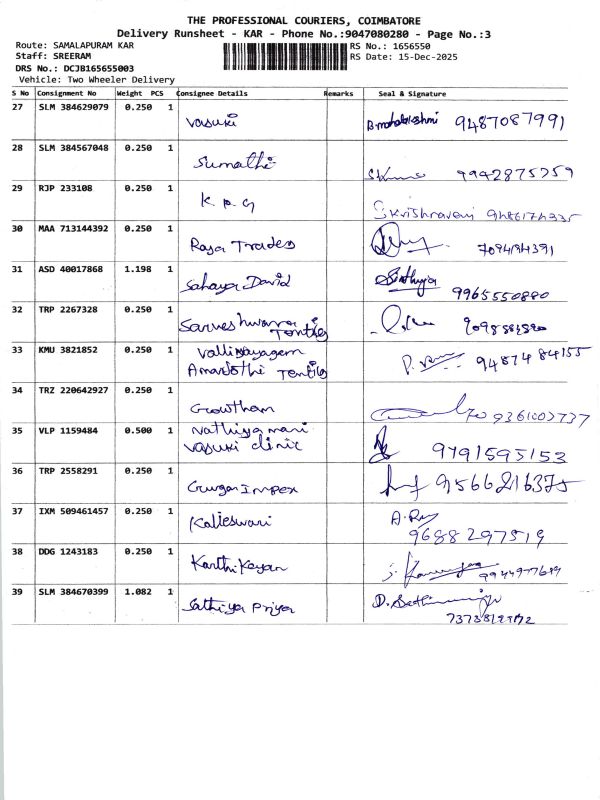 THE PROFESSIONAL COURIERS, COIMBATORE
Delivery Runsheet - KAR - Phone No.:9047080280 - Page No.:3
Route: SAMALAPURAM KAR RS No.: 1656550
Staff: SREERAM RS Date: 15-Dec-2025
DRS No.: DCJB165655003
Vehicle: Two Wheeler Delivery
S No Consignment No Weight PCS Consignee Details Remarks Seal & Signature
27 SLM 384629079 0.250 1 Vasuki 9487087991
28 SLM 384567048 0.250 1 Sumathi
29 RJP 233108 0.250 1 K. P. G
30 MAA 713144392 0.250 1 Raja Trades
31 ASD 40017868 1.198 1 Sahaya David Sathya
9965550880
32 TRP 2267328 0.250 1
33 KMU 3821852 0.250 1 Vallinayagam 9487484155
34 TRZ 220642927 0.250 1 Gowtham
35 VLP 1159484 0.500 1 Nathiya mani
Vasuki clinic 9791595153
36 TRP 2558291 0.250 1 9566216375
37 IXM 509461457 0.250 1 Kalieswari
9688297519
38 DDG 1243183 0.250 1 Karthikeyan
39 SLM 384670399 1.082 1 Sathiya Priya